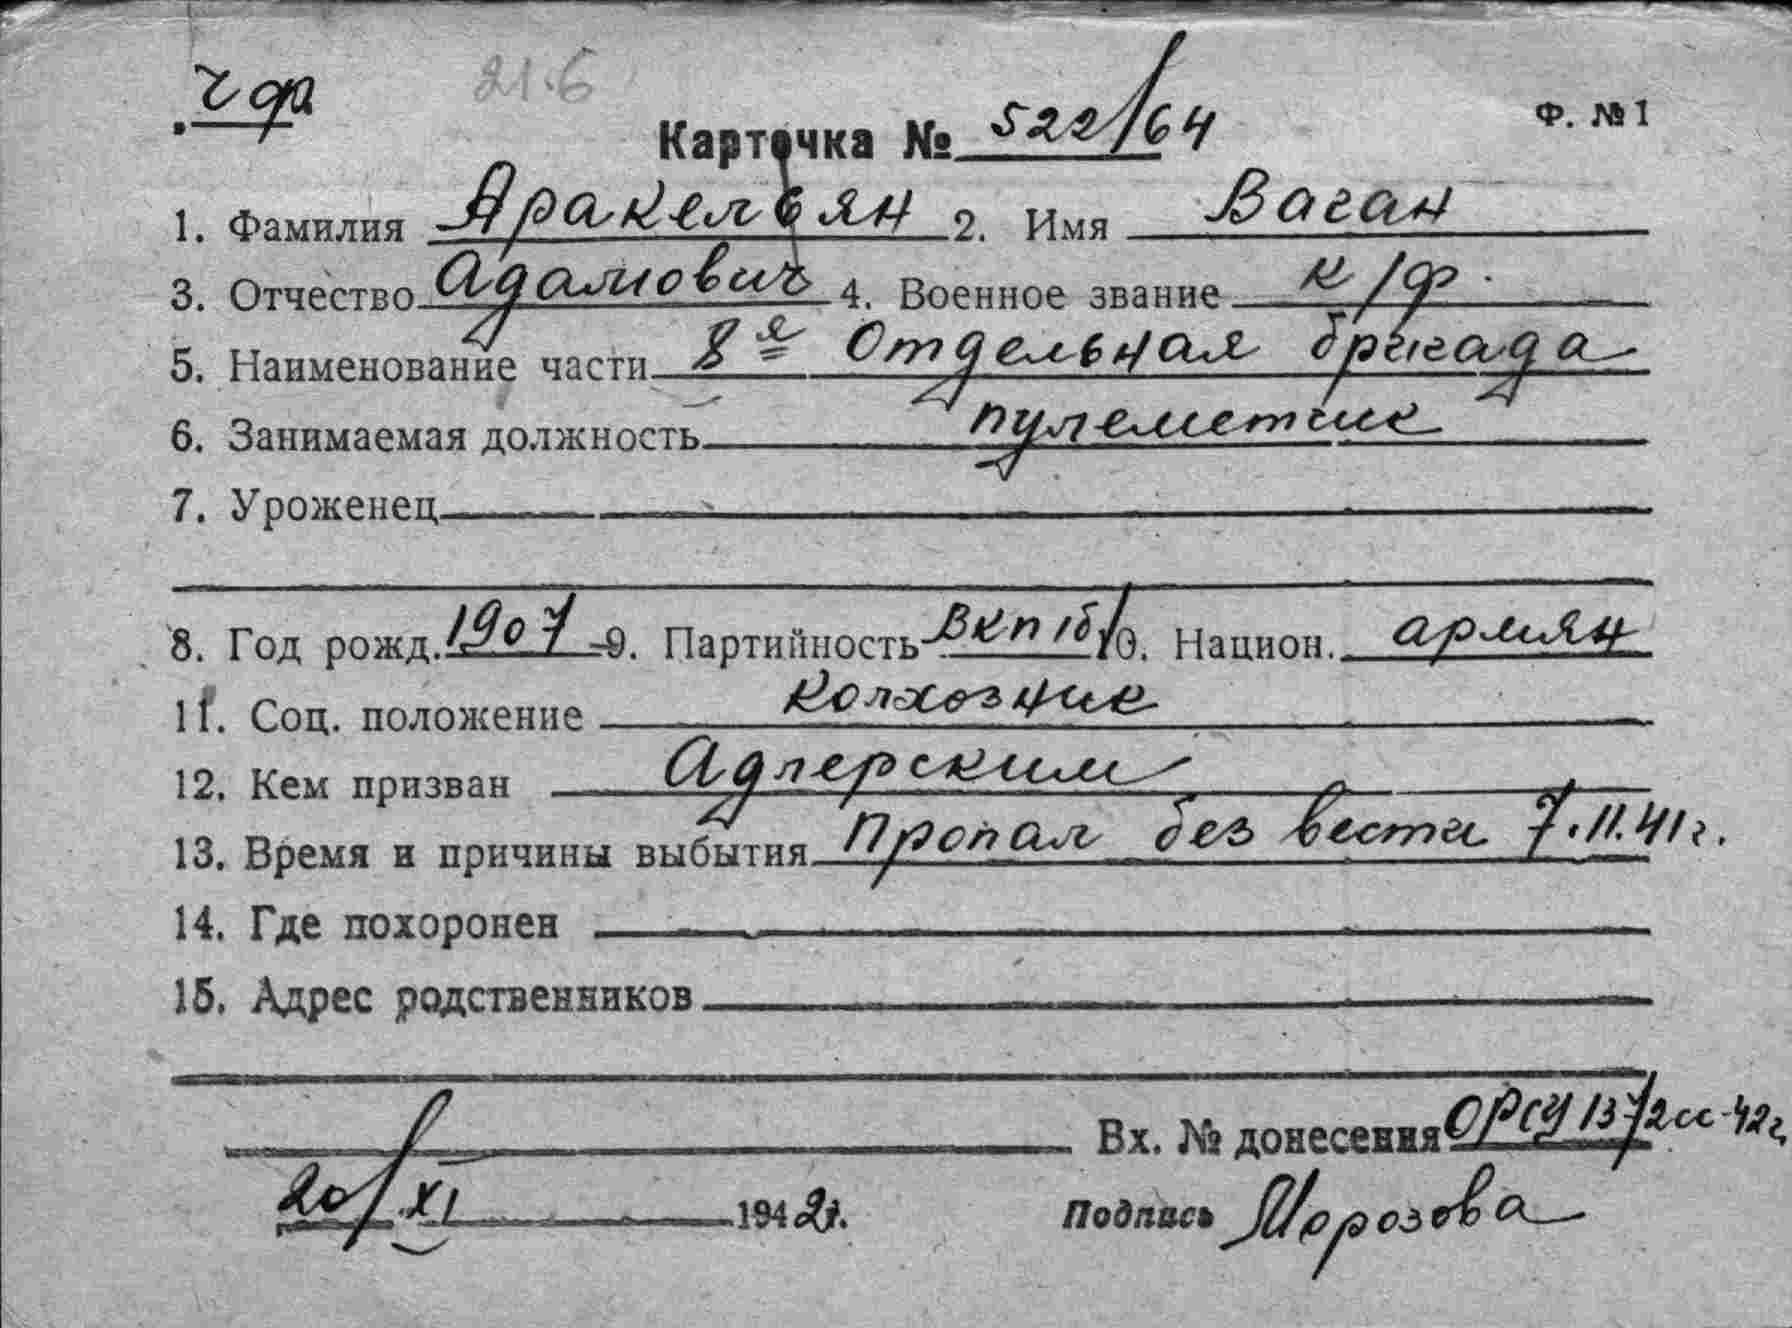 ЧФ 21.6
Ф. №1
Карточка № 522/64
1. Фамилия Аракельян 2. Имя Ваган
3. Отчество Адамович 4. Военное звание к/ф.
5. Наименование части 8я Отдельная бригада
6. Занимаемая должность пулеметчик
7. Уроженец
8. Год рожд. 1907 9. Партийность ВКП/б/ 10. Национ. армян
11. Соц. положение колхозник
12. Кем призван Адлерским
13. Время и причины выбытия Пропал без вести 7.11.41 г.
14. Где похоронен
15. Адрес родственников
Вх. № донесения ОРСУ 1372сс-42г
20/XI 1942 г. Подпись Морозова